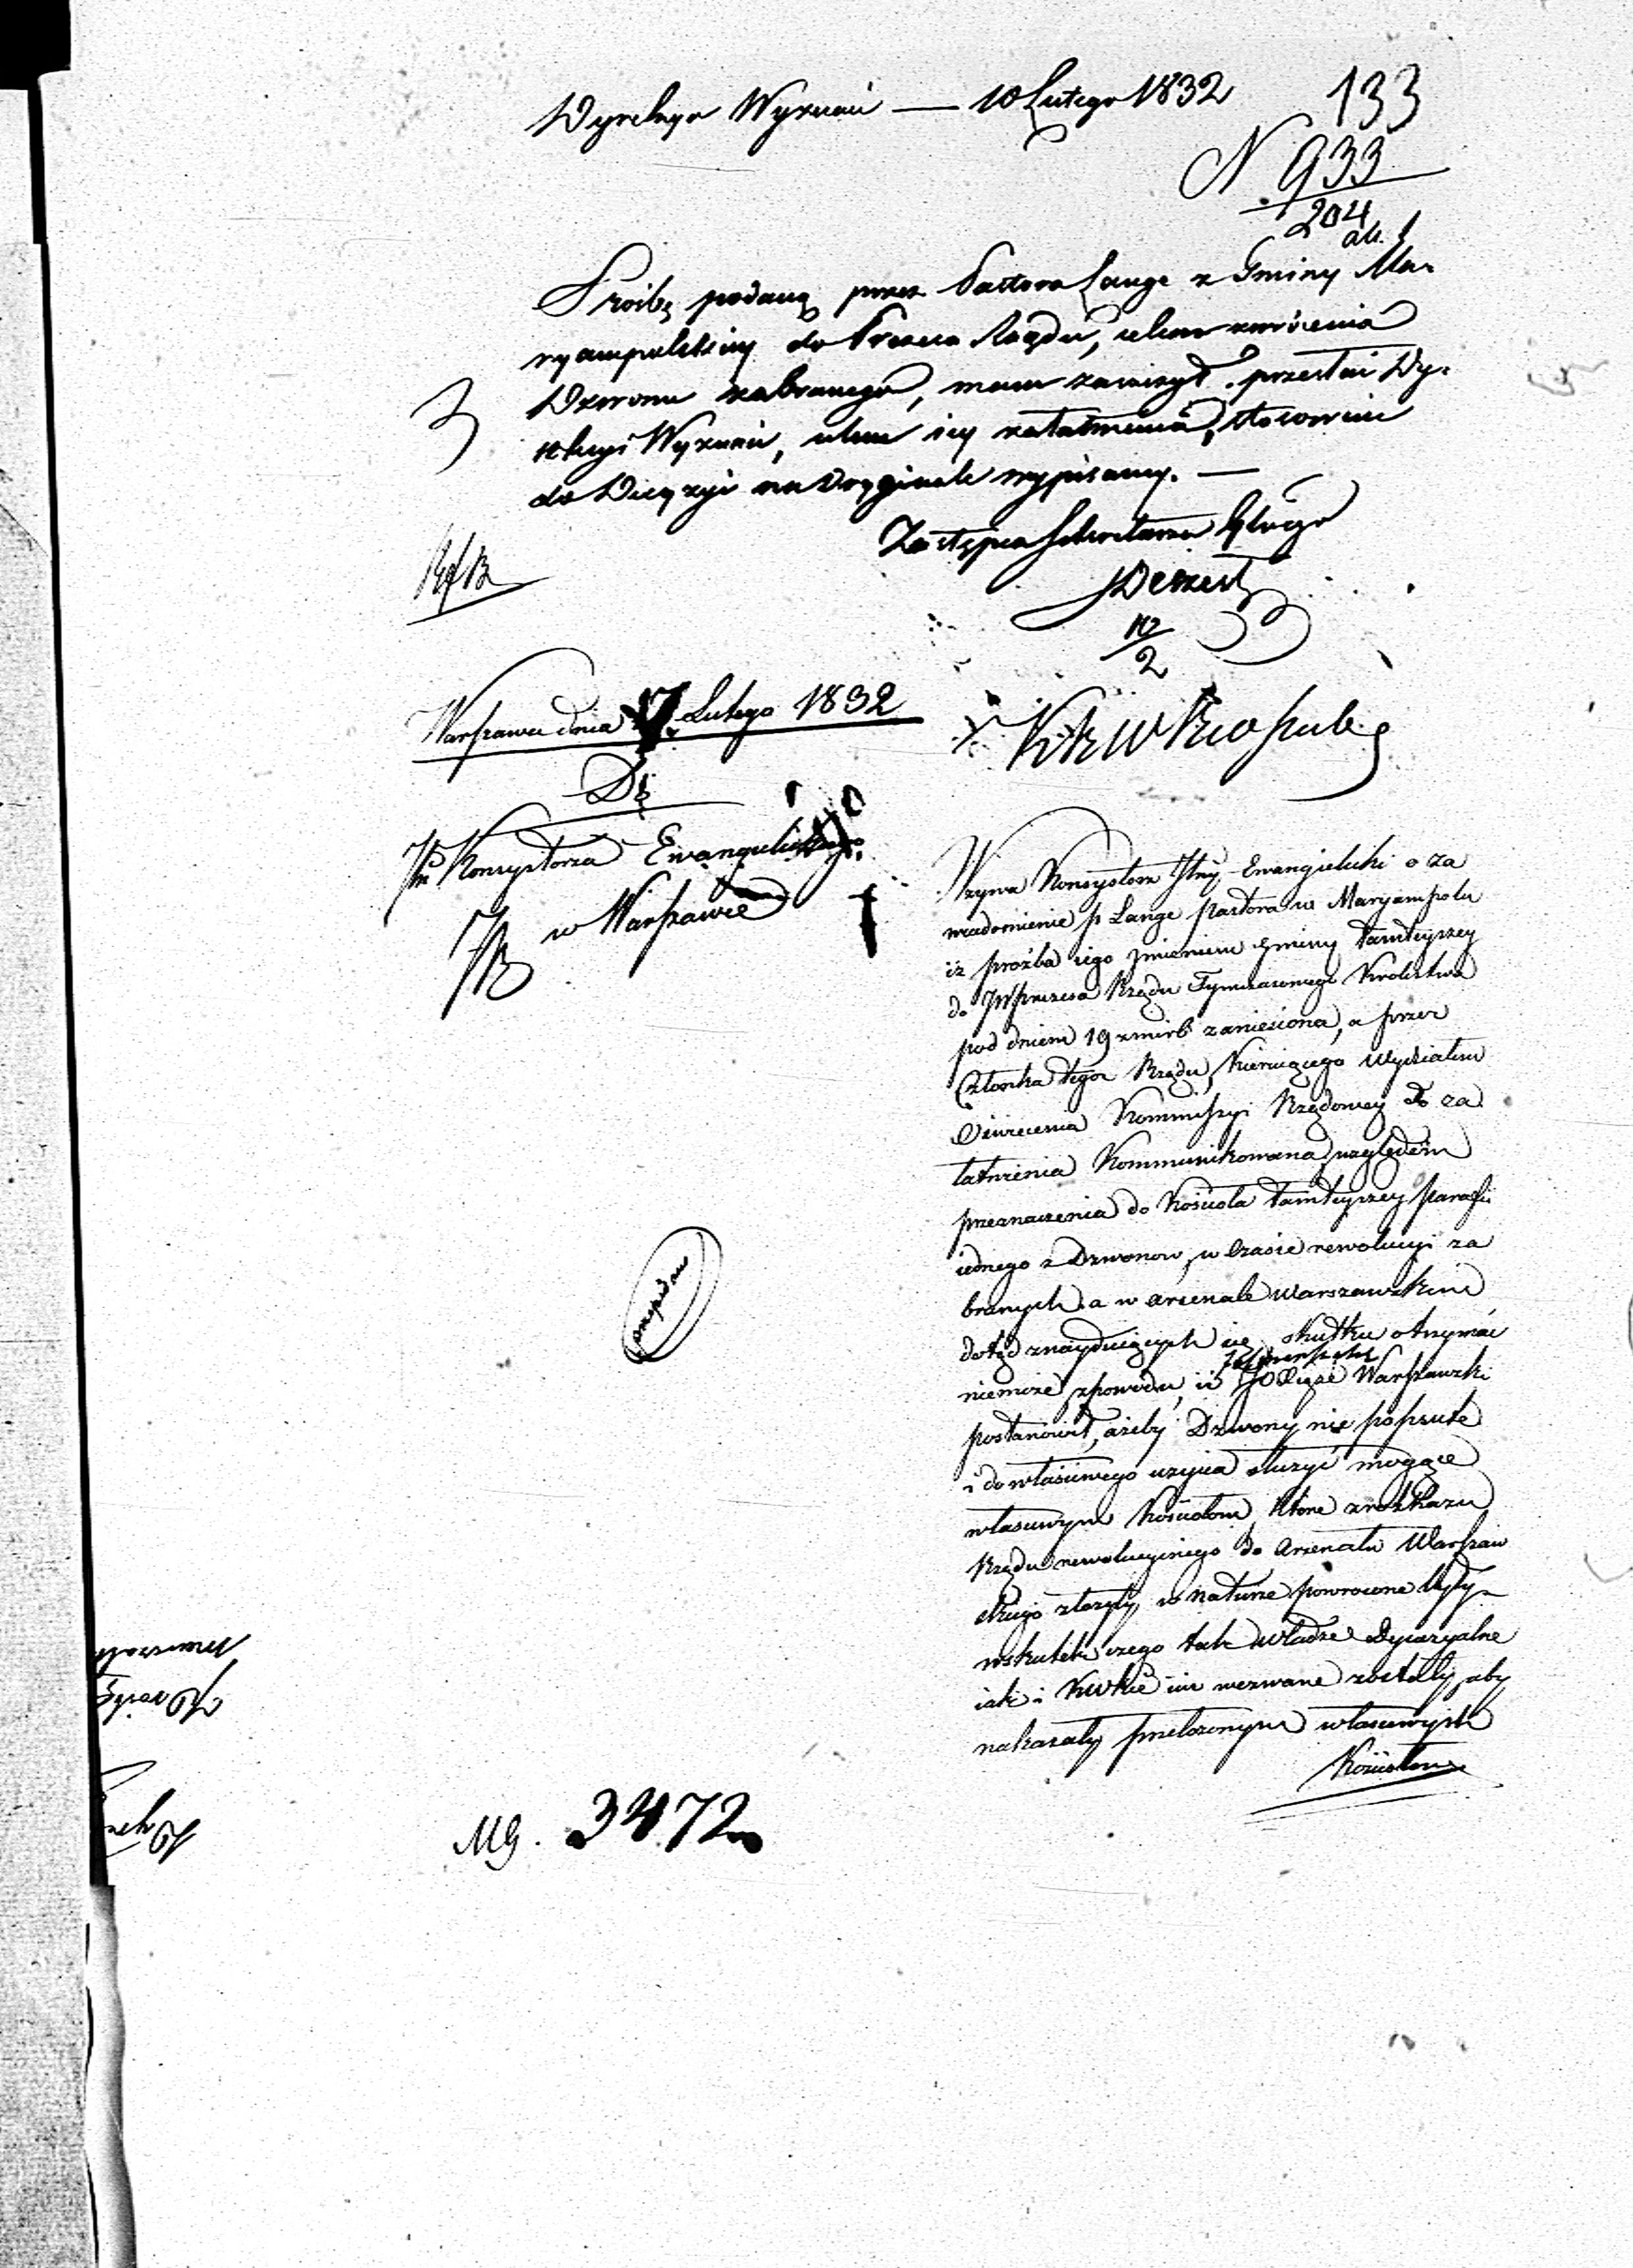 Dyrekcya Wyznań — 10 Lutego 1832
133
N. 933
204
Prośbę podaną przez Pastora Lange z Gminy Ma-
ryampolskiey do Prezesa Rządu, celem zwrócenia
Dzwonu zabranego, mam zaszczyt przesłać Dy-
rekcyi Wyznań, celem iey załatwienia, stosownie
do Decyzyi na Oryginale wypisaney. —
Zastępca Sekretarza Głnego
10/2
Warszawa dnia 17 Lutego 1832
Do
Konsystorza Ewangelickiego
w Warszawie
KRWR i O publ
Wzywa Konsystorz Ewangielicki o za
wiadomienie p Lange pastora w Maryampolu
iż prośba iego imieniem gminy tamteyszey
do JW Prezesa Rządu Tymczasowego Królestwa
pod dniem 19 zaniesiona, a przez
Członka tegoż Rządu Kieruiącego Wydziałem
Oświecenia Kommissyi Rządowey do za
łatwienia Kommunikowana, względem
przeznaczenia do Kościoła tamteyszey parafii
iednego z Dzwonów, w czasie rewolucyi za
branych a w arsenale Warszawskim
dotąd znayduiących się, skutku otrzymać
niemoże z powodu, iż Xiąże Warszawski
postanowił, ażeby Dzwony nie popsute
i do właściwego użycia służyć mogące
właściwym Kościołom, które z rozkazu
Rządu rewolucyinego do Arsenału Warszaw
skiego złożyły, w naturze powrócone były
wskutek czego tak władze Dyecezyalne
iak i KWkie wezwane zostały, aby
nakazały przełożonym właściwych
Kościołów
MG. 3472